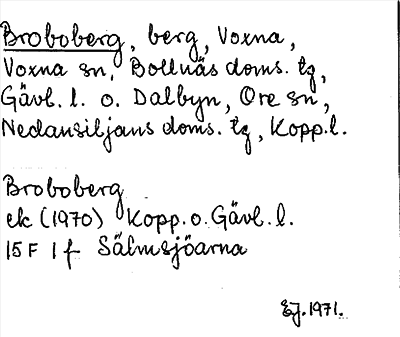 Broboberg, berg, Voxna,
Voxna sn, Bollnäs doms. tg,
Gävl. l. o. Dalbyn, Ore sn,
Nedansiljans doms. tg, Kopp.l.
Broboberg
ek (1970) Kopp. o. Gävl. l.
15 F 1 f Sälmsjöarna
EJ. 1971.